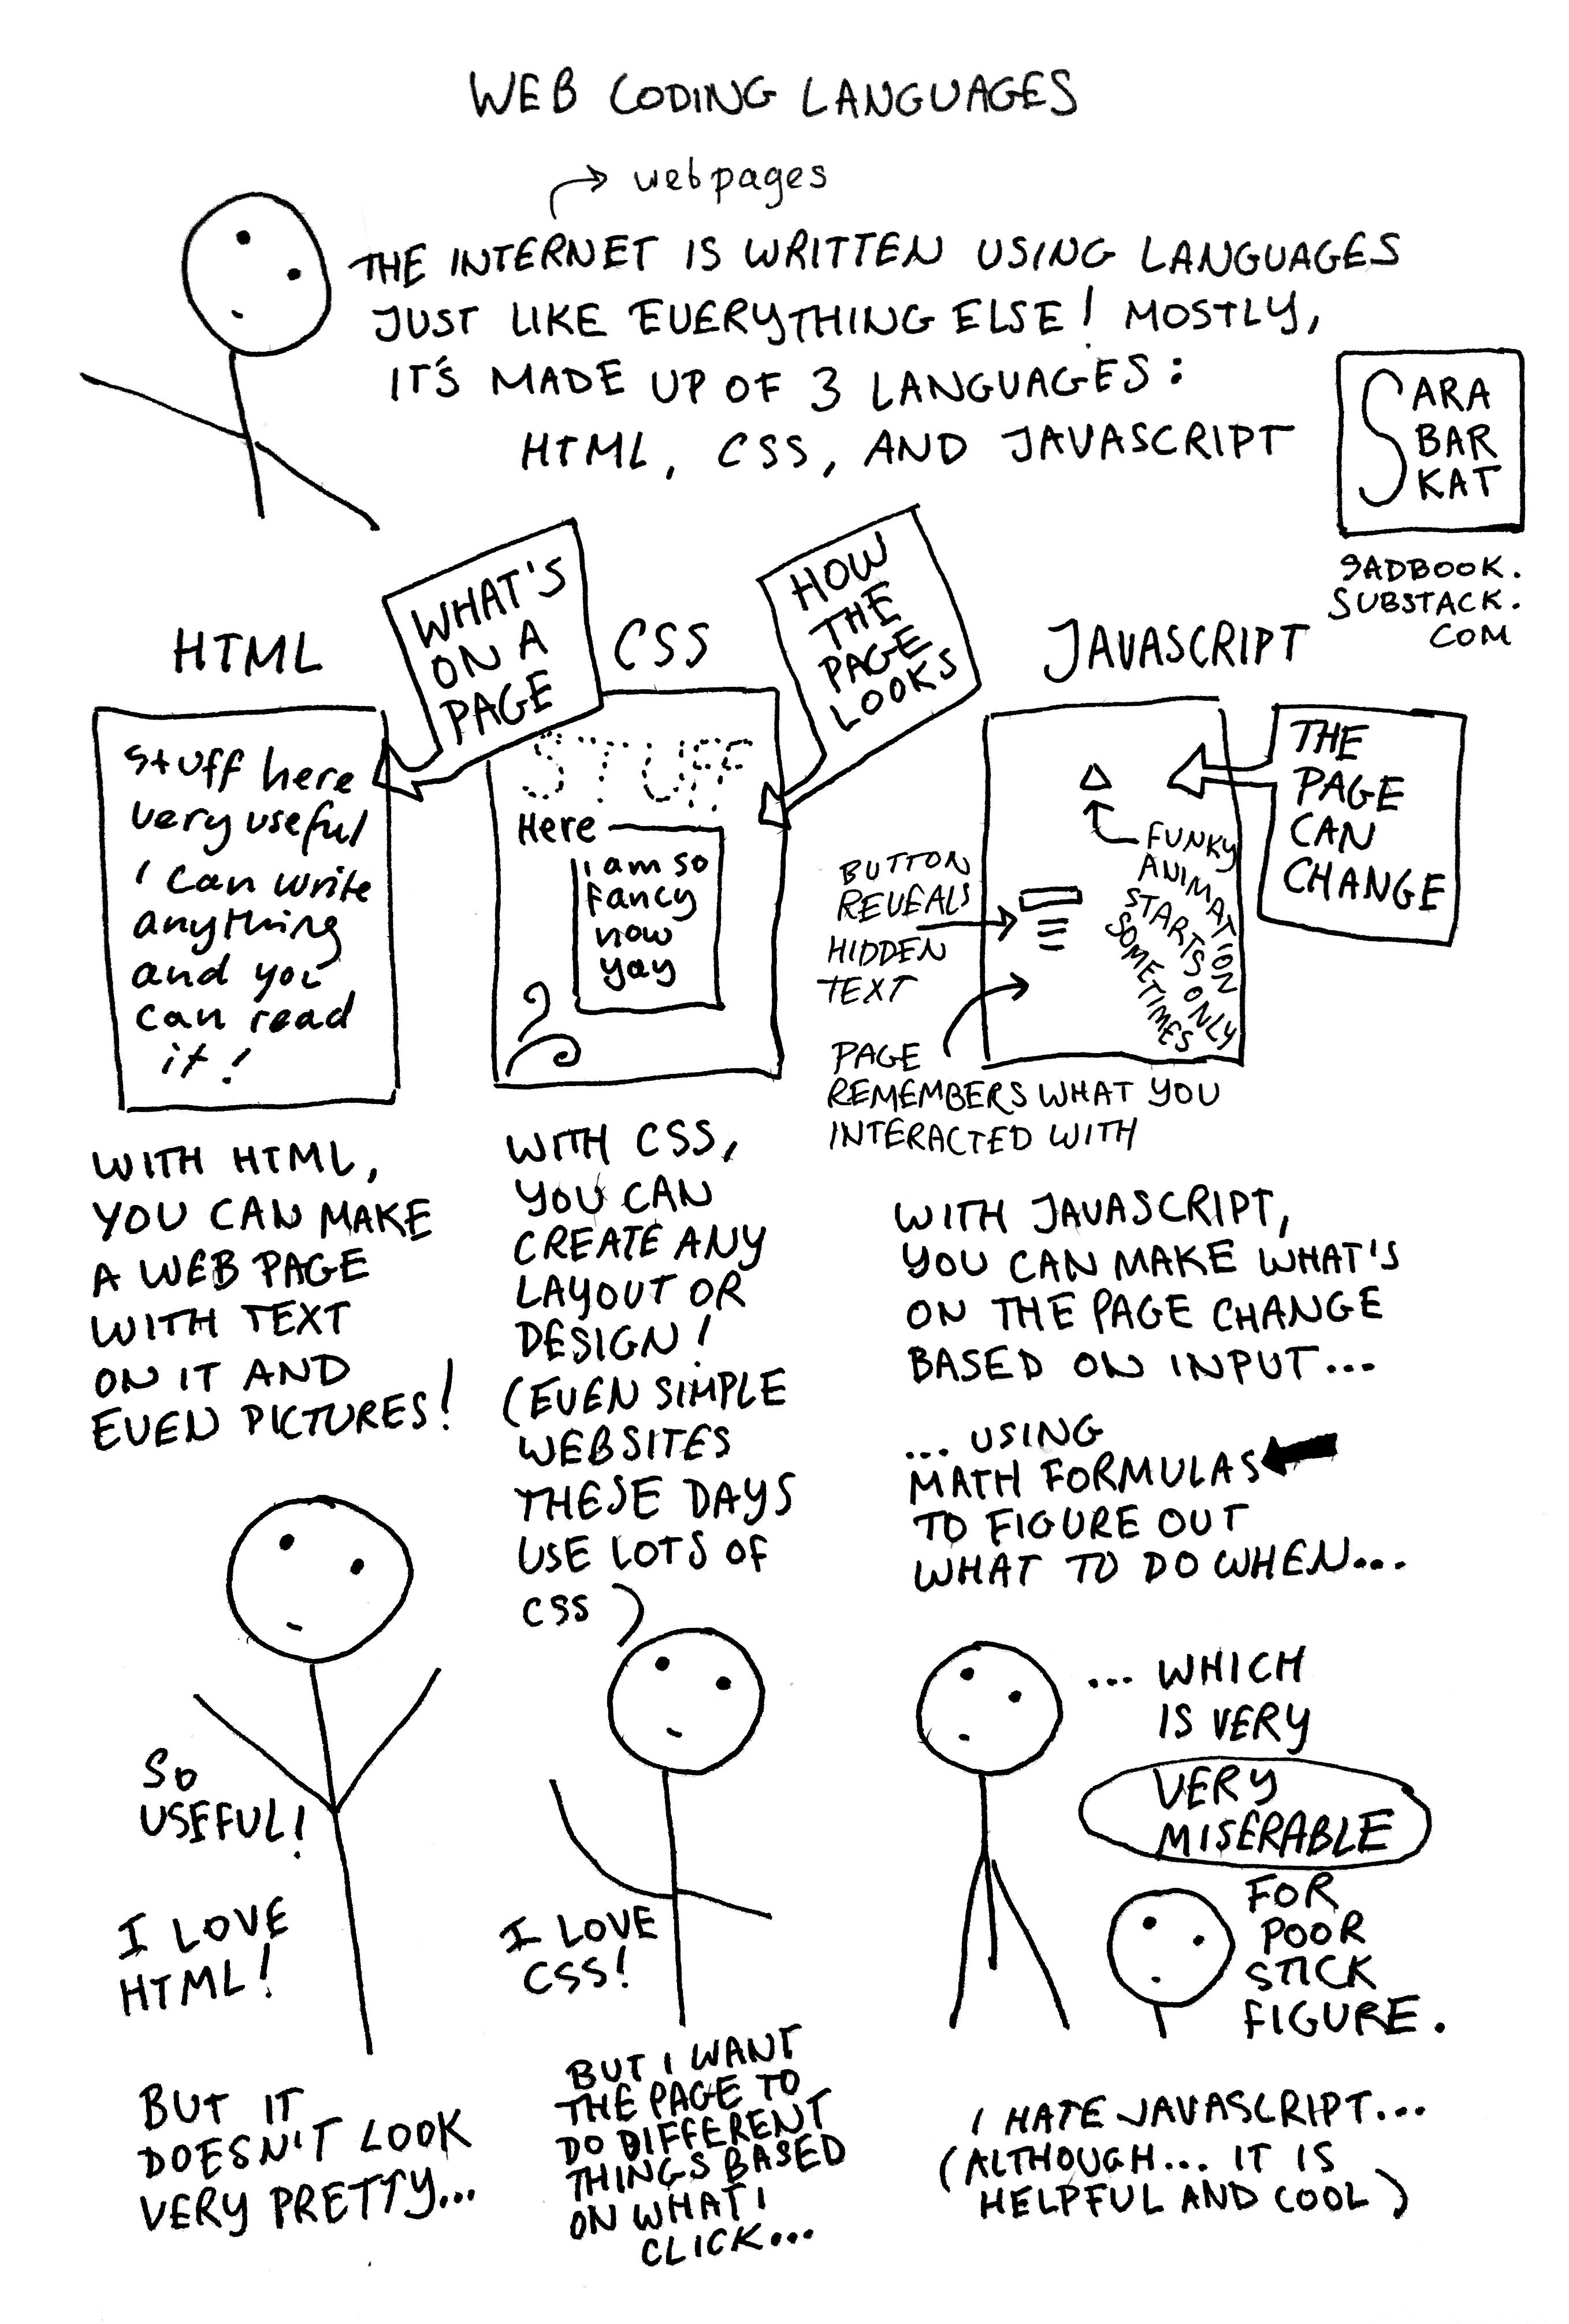 WEB CODING LANGUAGES
webpages
THE INTERNET IS WRITTEN USING LANGUAGES
JUST LIKE EVERYTHING ELSE! MOSTLY,
IT'S MADE UP OF 3 LANGUAGES:
HTML, CSS, AND JAVASCRIPT
SARA
BAR
KAT
SADBOOK.
SUBSTACK.
COM
HTML
WHAT'S
ON A
PAGE
stuff here
very useful
i can write
anything
and you
can read
it!
WITH HTML,
YOU CAN MAKE
A WEB PAGE
WITH TEXT
ON IT AND
EVEN PICTURES!
SO
USEFUL!
I LOVE
HTML!
BUT IT
DOESN'T LOOK
VERY PRETTY...
CSS
HOW
THE
PAGE
LOOKS
STUFF
Here
i am so
fancy
now
yay
WITH CSS,
YOU CAN
CREATE ANY
LAYOUT OR
DESIGN!
(EVEN SIMPLE
WEBSITES
THESE DAYS
USE LOTS OF
CSS)
I LOVE
CSS!
BUT I WANT
THE PAGE TO
DO DIFFERENT
THINGS BASED
ON WHAT I
CLICK...
JAVASCRIPT
THE
PAGE
CAN
CHANGE
FUNKY
ANIMATION
STARTS ONLY
SOMETIMES
BUTTON
REVEALS
HIDDEN
TEXT
PAGE
REMEMBERS WHAT YOU
INTERACTED WITH
WITH JAVASCRIPT,
YOU CAN MAKE WHAT'S
ON THE PAGE CHANGE
BASED ON INPUT...
... USING
MATH FORMULAS
TO FIGURE OUT
WHAT TO DO WHEN...
... WHICH
IS VERY
VERY
MISERABLE
FOR
POOR
STICK
FIGURE.
I HATE JAVASCRIPT...
(ALTHOUGH... IT IS
HELPFUL AND COOL)